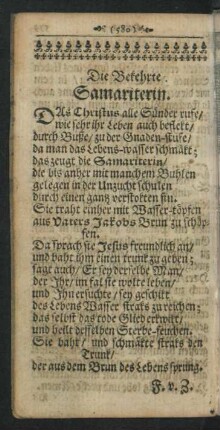 (580)
Die Bekehrte
Samariterin.
DAs Christus alle Sünder rufe/
wie sehr ihr Leben auch beflekt/
durch Busse/ zu der Gnaden-stuffe/
da man das Lebens-wasser schmäkt;
das zeugt die Samariterin/
die bis anher mit manchem Buhlen
gelegen in der Unzucht schulen
durch einen ganz verstokten sin.
Sie traht einher mit Wasser-töpfen
aus Vaters Jakobs Brun zu schöp-
fen.
Da sprach sie Jesus freundlich an/
und baht ihm einen trunk zu geben;
sagt auch/ Er sey derselbe Man/
der Ihr/ im fal sie wolte leben/
und Ihn ersuchte/ sey geschikt
des Lebens Wasser straks zu reichen;
das selbst das tode Glied erkwikt/
und heilt desselben Sterbe-seuchen.
Sie baht/ und schmäkte straks den
Trunk/
der aus dem Brun des Lebens sprung.
F. v. Z.